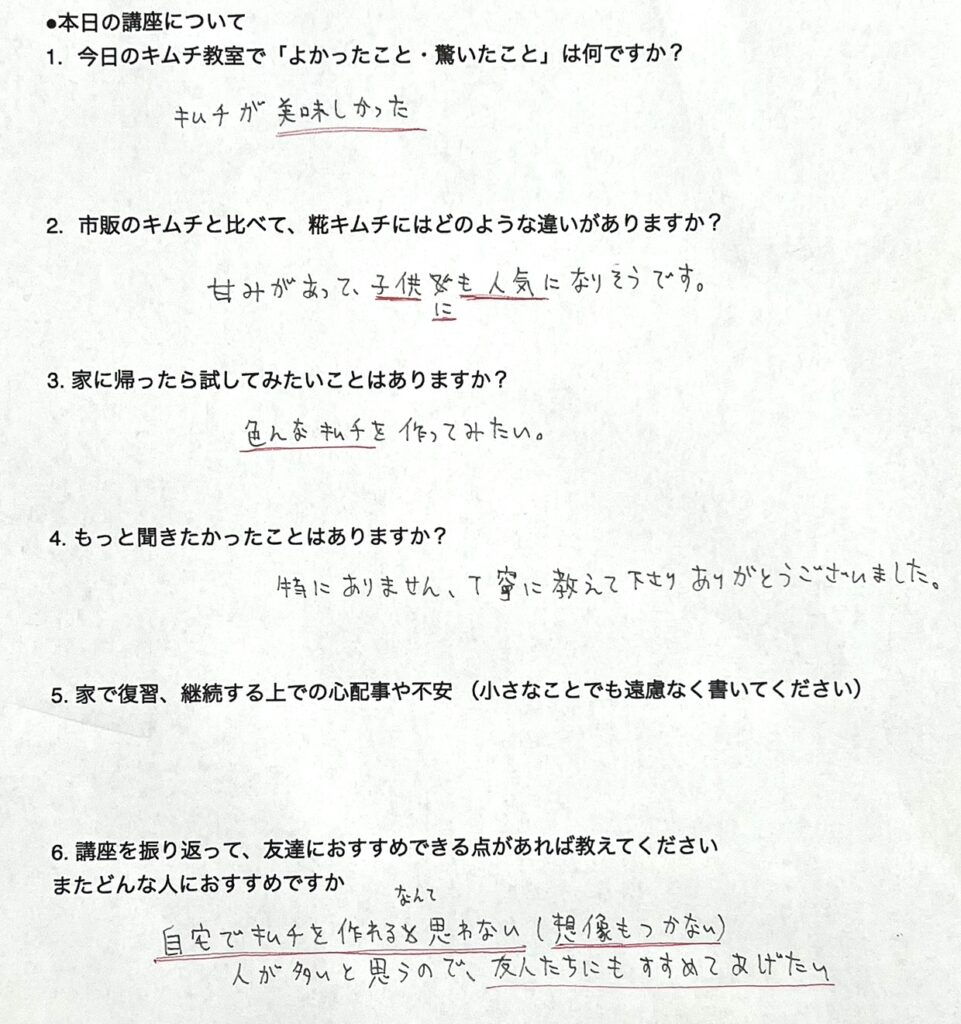 ●本日の講座について
1. 今日のキムチ教室で「よかったこと・驚いたこと」は何ですか？
キムチが美味しかった
2. 市販のキムチと比べて、糀キムチにはどのような違いがありますか？
甘みがあって、子供にも人気になりそうです。
3. 家に帰ったら試してみたいことはありますか？
色んなキムチを作ってみたい。
4. もっと聞きたかったことはありますか？
特にありません、丁寧に教えて下さりありがとうございました。
5. 家で復習、継続する上での心配事や不安 （小さなことでも遠慮なく書いてください）
6. 講座を振り返って、友達におすすめできる点があれば教えてください
またどんな人におすすめですか
自宅でキムチを作れるなんて思わない（想像もつかない）
人が多いと思うので、友人たちにもすすめてあげたい